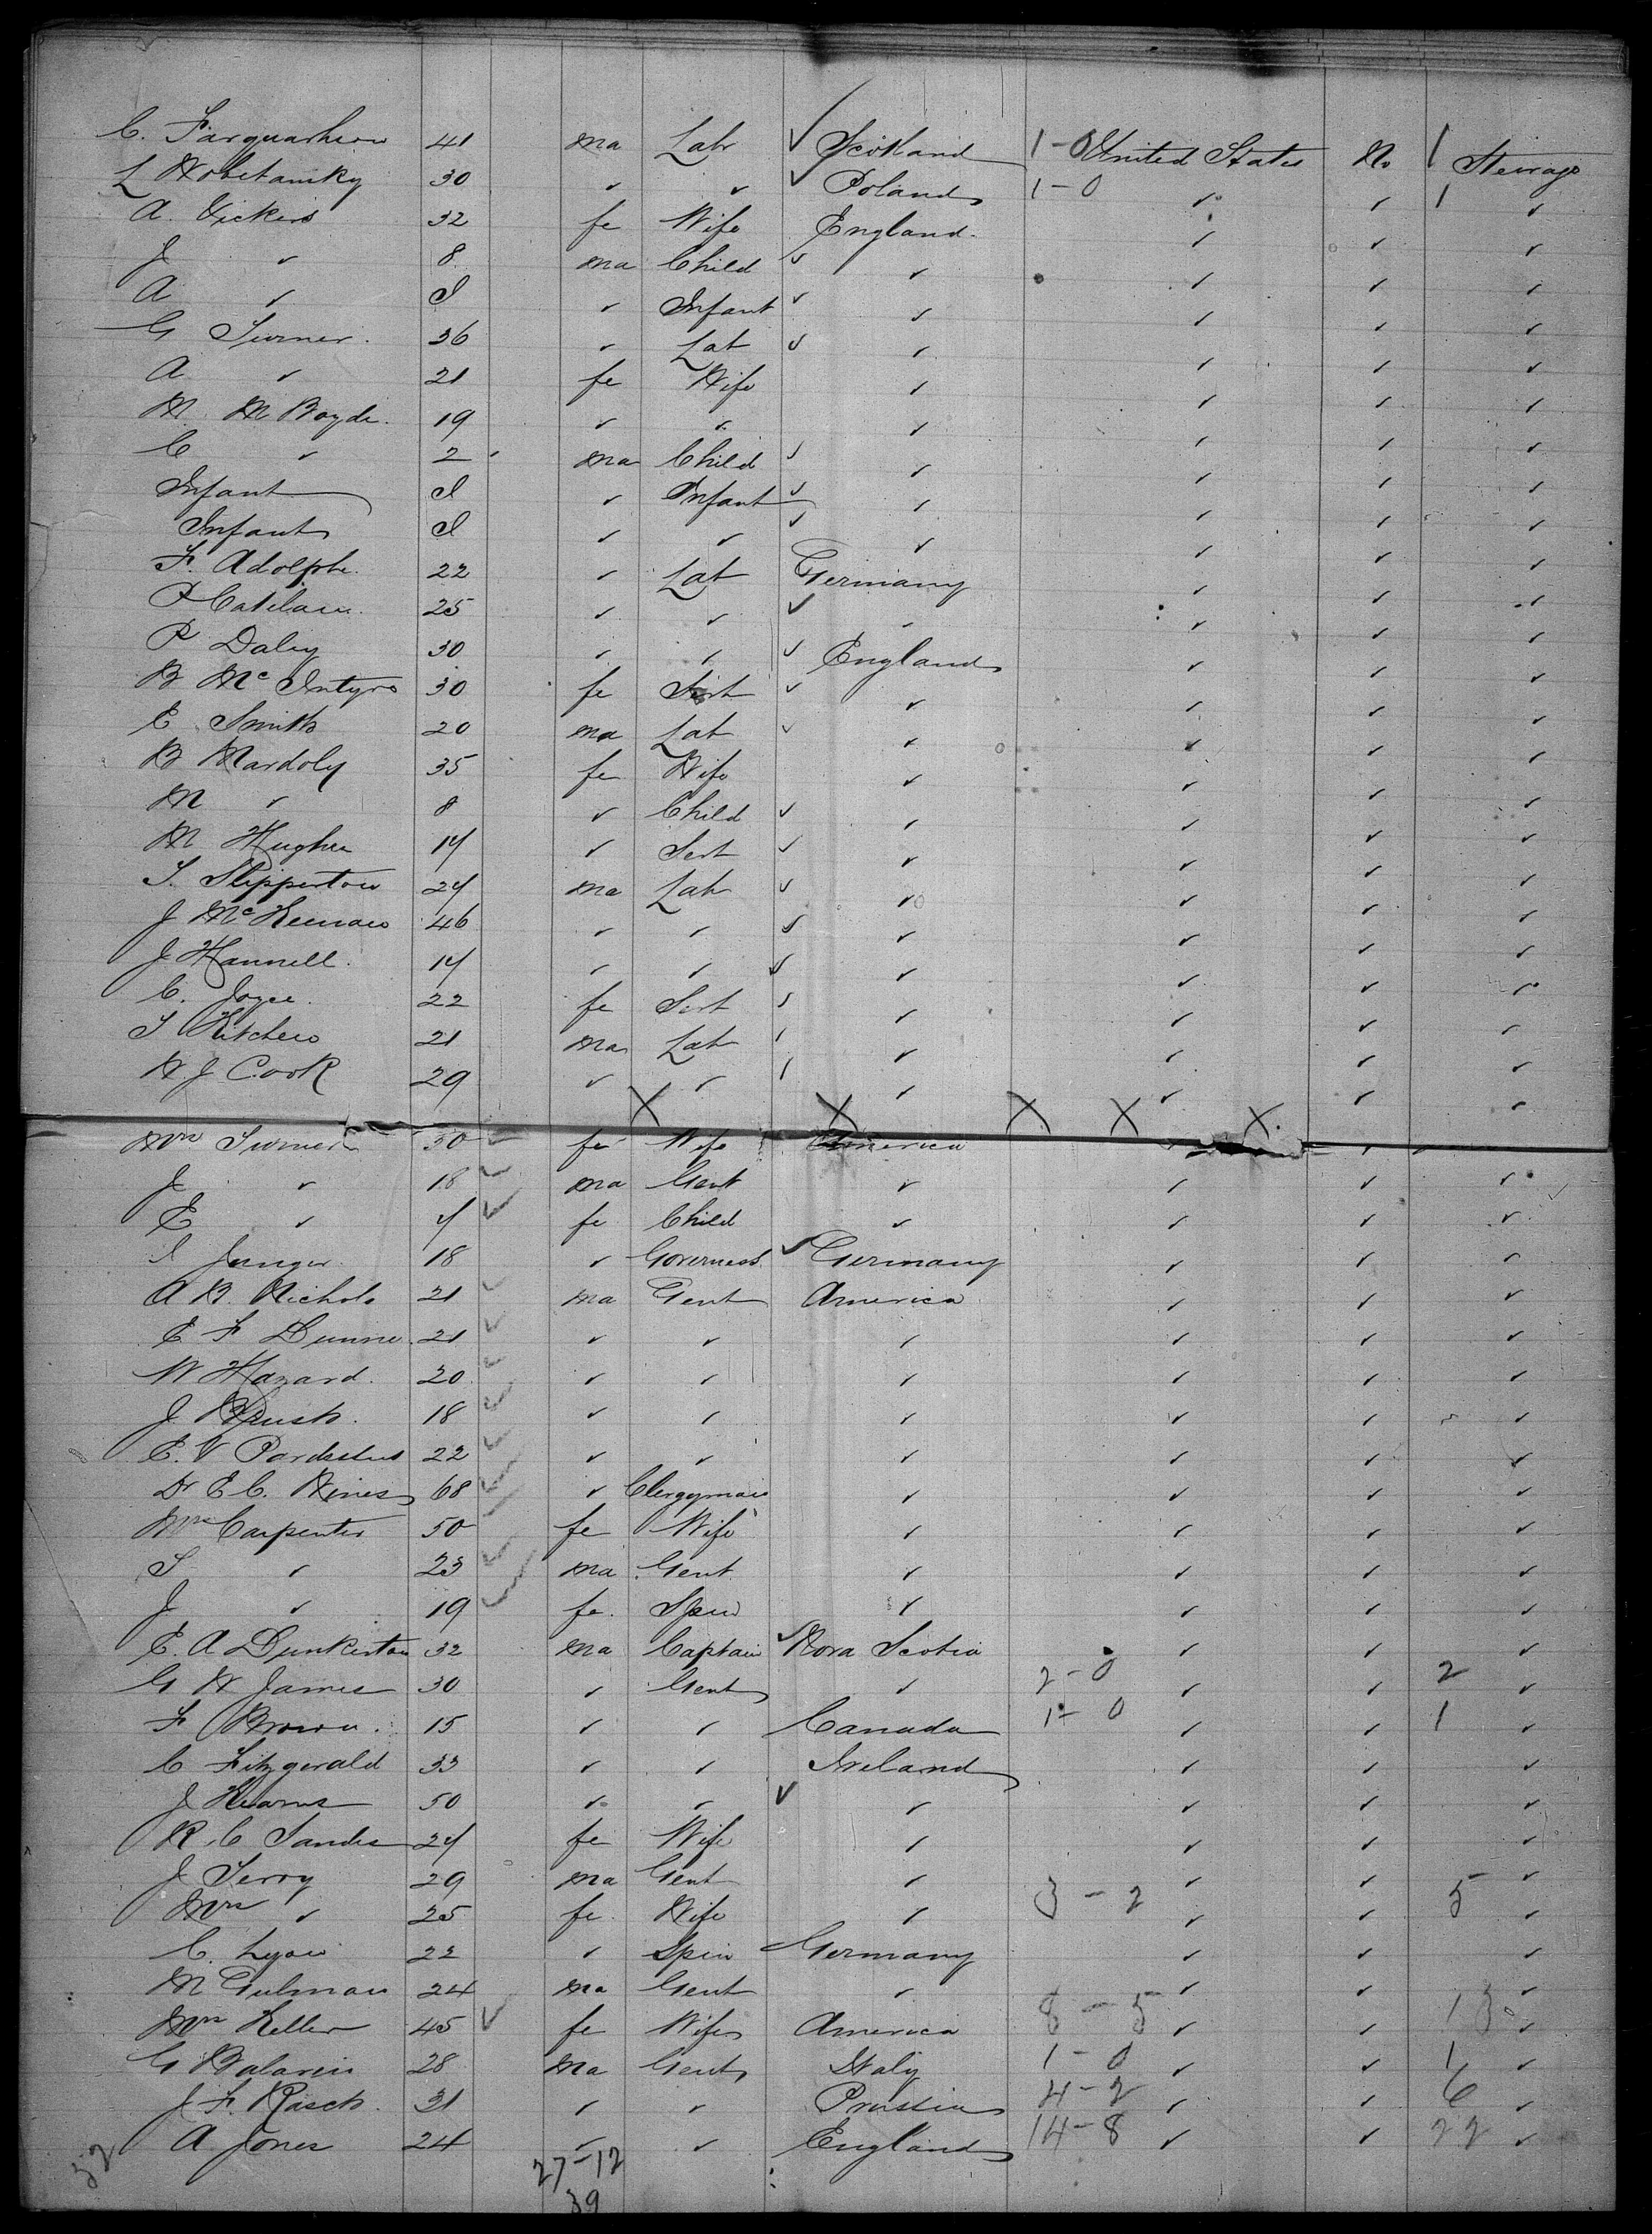 C. Farquarhson 41 ma Labr ✓ Scotland 1-0 United States No 1 Steirage
L 30 ✓ ✓ ✓ Poland 1-0 ✓ ✓ 1 ✓
A. Vickers 32 fe Wife England ✓ ✓ ✓
J ✓ 8 ma Child ✓ ✓ ✓ ✓ ✓
A ✓ I ✓ Infant ✓ ✓ ✓ ✓ ✓
G Turner 36 ✓ Lab ✓ ✓ ✓ ✓ ✓
A ✓ 21 fe Wife ✓ ✓ ✓ ✓
M McBoyde 19 ✓ ✓ ✓ ✓ ✓ ✓
C ✓ 2 ma Child ✓ ✓ ✓ ✓ ✓
Infant I ✓ Infant ✓ ✓ ✓ ✓ ✓
Infant I ✓ ✓ ✓ ✓ ✓ ✓ ✓
F. Adolphe 22 ✓ Lab Germany ✓ ✓ ✓
P 25 ✓ ✓ ✓ ✓ ✓ ✓ ✓
P Daley 30 ✓ ✓ ✓ England ✓ ✓ ✓
B McIntyre 30 fe Sert ✓ ✓ ✓ ✓ ✓
E Smith 20 ma Lab ✓ ✓ ✓ ✓ ✓
B Mardoly 35 fe Wife ✓ ✓ ✓ ✓
M ✓ 8 ✓ Child ✓ ✓ ✓ ✓ ✓
M Hughes 17 ✓ Sert ✓ ✓ ✓ ✓ ✓
T. Slipperton 27 ma Lab ✓ ✓ ✓ ✓ ✓
J McKeenan 46 ✓ ✓ ✓ ✓ ✓ ✓ ✓
J Hannell 17 ✓ ✓ ✓ ✓ ✓ ✓ ✓
C. Joyce 22 fe Sert ✓ ✓ ✓ ✓ ✓
T Kitchen 21 ma Lab ✓ ✓ ✓ ✓ ✓
W J Cook 29 ✓ ✓ ✓ ✓ ✓ ✓ ✓
X X X X X
Mrs Turner 50 ✓ fe Wife America ✓ ✓ ✓
J ✓ 18 ✓ ma Gent ✓ ✓ ✓ ✓
E ✓ 7 ✓ fe Child ✓ ✓ ✓ ✓
I Junger 18 ✓ Governess ✓ Germany ✓ ✓ ✓
A B. Nichols 21 ✓ ma Gent America ✓ ✓ ✓
E F Dunne 21 ✓ ✓ ✓ ✓ ✓ ✓ ✓
W Hazard 20 ✓ ✓ ✓ ✓ ✓ ✓ ✓
J. 18 ✓ ✓ ✓ ✓ ✓ ✓ ✓
E. V 22 ✓ ✓ ✓ ✓ ✓ ✓ ✓
Dr E C. Wines 68 ✓ ✓ Clergyman ✓ ✓ ✓ ✓
Mrs Carpenter 50 fe Wife ✓ ✓ ✓ ✓
S ✓ 23 ✓ ma Gent ✓ ✓ ✓ ✓
J ✓ 19 ✓ fe. Spin ✓ ✓ ✓ ✓
E. A Dunkerton 32 ma Captain ✓ Nova Scotia ✓ ✓ ✓
G W James 30 ✓ Gent ✓ 2-0 ✓ ✓ 2 ✓
F Brown. 15 ✓ ✓ Canada 1-0 ✓ ✓ 1 ✓
C Fitzgerald 33 ✓ ✓ Ireland ✓ ✓ ✓
J Kearns 50 ✓ ✓ ✓ ✓ ✓ ✓ ✓
R. C Sandes 27 fe Wife ✓ ✓ ✓ ✓
J Terry 29 ma Gent ✓ ✓ ✓ ✓
Mrs ✓ 25 fe Wife ✓ 3-2 ✓ ✓ 5 ✓
C. Lyon 22 ✓ Spin Germany ✓ ✓ ✓
M Gulman 24 ma Gent ✓ ✓ ✓ ✓
Mrs Keller 45 ✓ fe Wife America 8-5 ✓ ✓ 13 ✓
G Balarin 28 ma Gent Italy 1-0 ✓ ✓ 1 ✓
J. F. Rasch 31 ✓ ✓ Prussia 4-2 ✓ ✓ 6 ✓
A Jones 24 ✓ ✓ England 14-8 ✓ ✓ 22 ✓
52
27-12
39